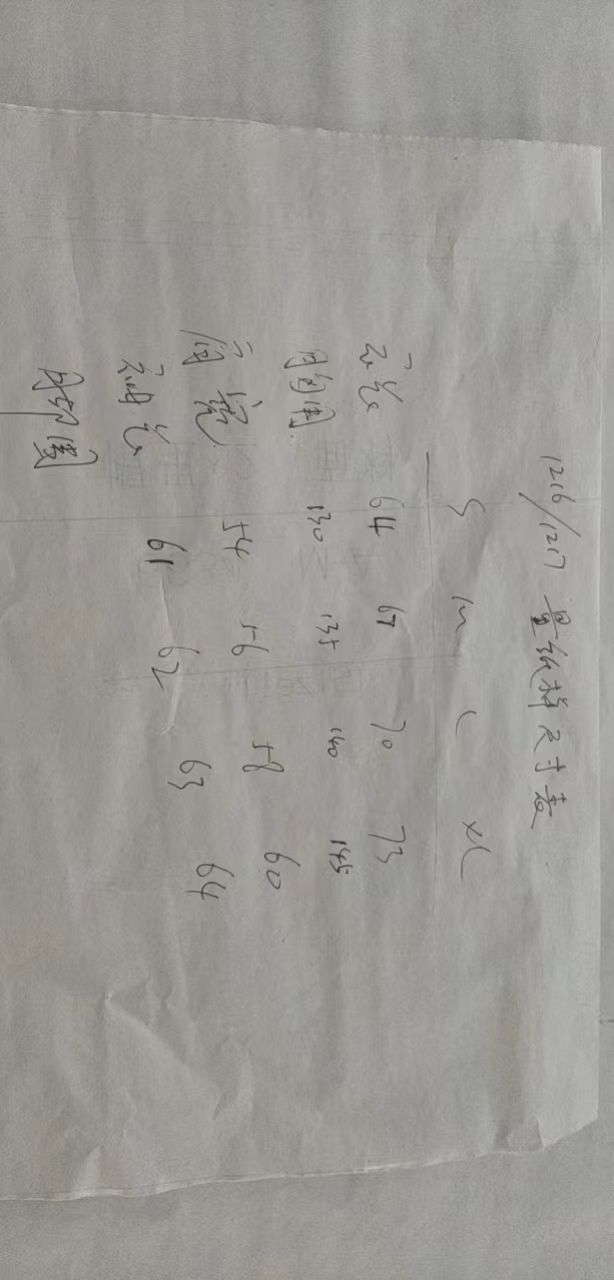 1216/1217 量纸样尺寸表
S M L XL
衣长 64 67 70 73
胸围 130 135 140 145
肩宽 54 56 58 60
袖长 61 62 63 64
围